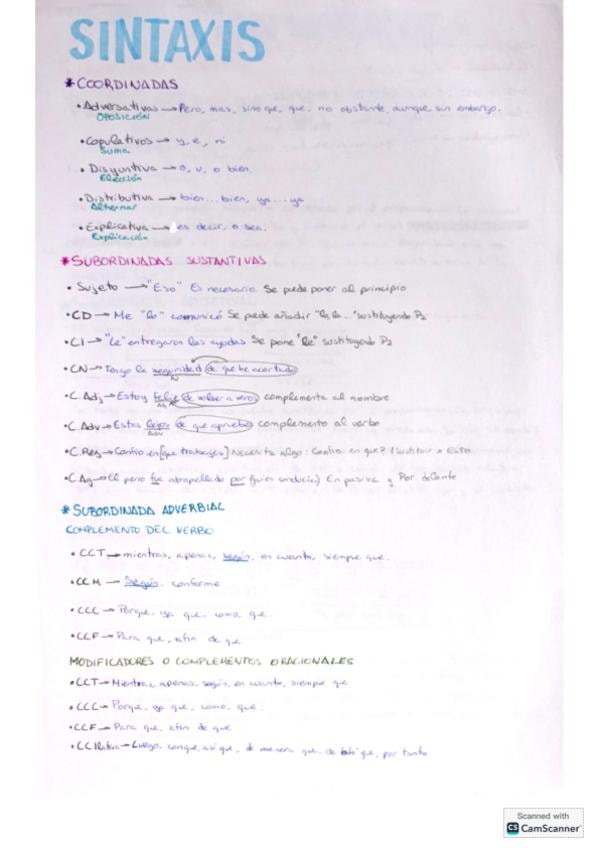 SINTAXIS
* COORDINADAS
• Adversativas → Pero, mas, sino que, que, no obstante, aunque, sin embargo.
OPOSICIÓN
• Copulativos → y, e, ni
Suma
• Disyuntiva → o, u, o bien.
Elección
• Distributiva → bien... bien, ya... ya
Alternar
• Explicativa → es decir, o sea.
Explicación
* SUBORDINADAS SUSTANTIVAS
• Sujeto → "Eso" Es necesario Se puede poner al principio
• CD → Me "lo" comunicó Se puede añadir "lo, la..." sustituyendo P2
• CI → "Le" entregaron las ayudas Se pone "le" sustituyendo P2
• CN → Tengo la seguridad de que he acertado
N
• C. Adj → Estoy feliz de volver a veros complementa al nombre
Adj
• C. Adv → Estas lejos de que apruebes complemento al verbo
Adv
• C. Reg → Confío en [que trabajes] Necesita algo: Confía en que? (sustituir x Esto
• C. Ag → El perro fue atropellado por (quien conducía) En pasiva y Por delante
* SUBORDINADA ADVERBIAL
COMPLEMENTO DEL VERBO
• CCT → mientras, apenas, según, en cuanto, siempre que.
• CCM → Según, conforme
• CCC → Porque, ya que, como, que.
• CCF → Para que, afin de que
MODIFICADORES O COMPLEMENTOS ORACIONALES
• CCT → Mientras, apenas, según, en cuanto, siempre que
• CCC → Porque, ya que, como, que.
• CCF → Para que, afin de que
→ Luego, conque, así que, de manera que, de que, por tanto
Scanned with
CS CamScanner